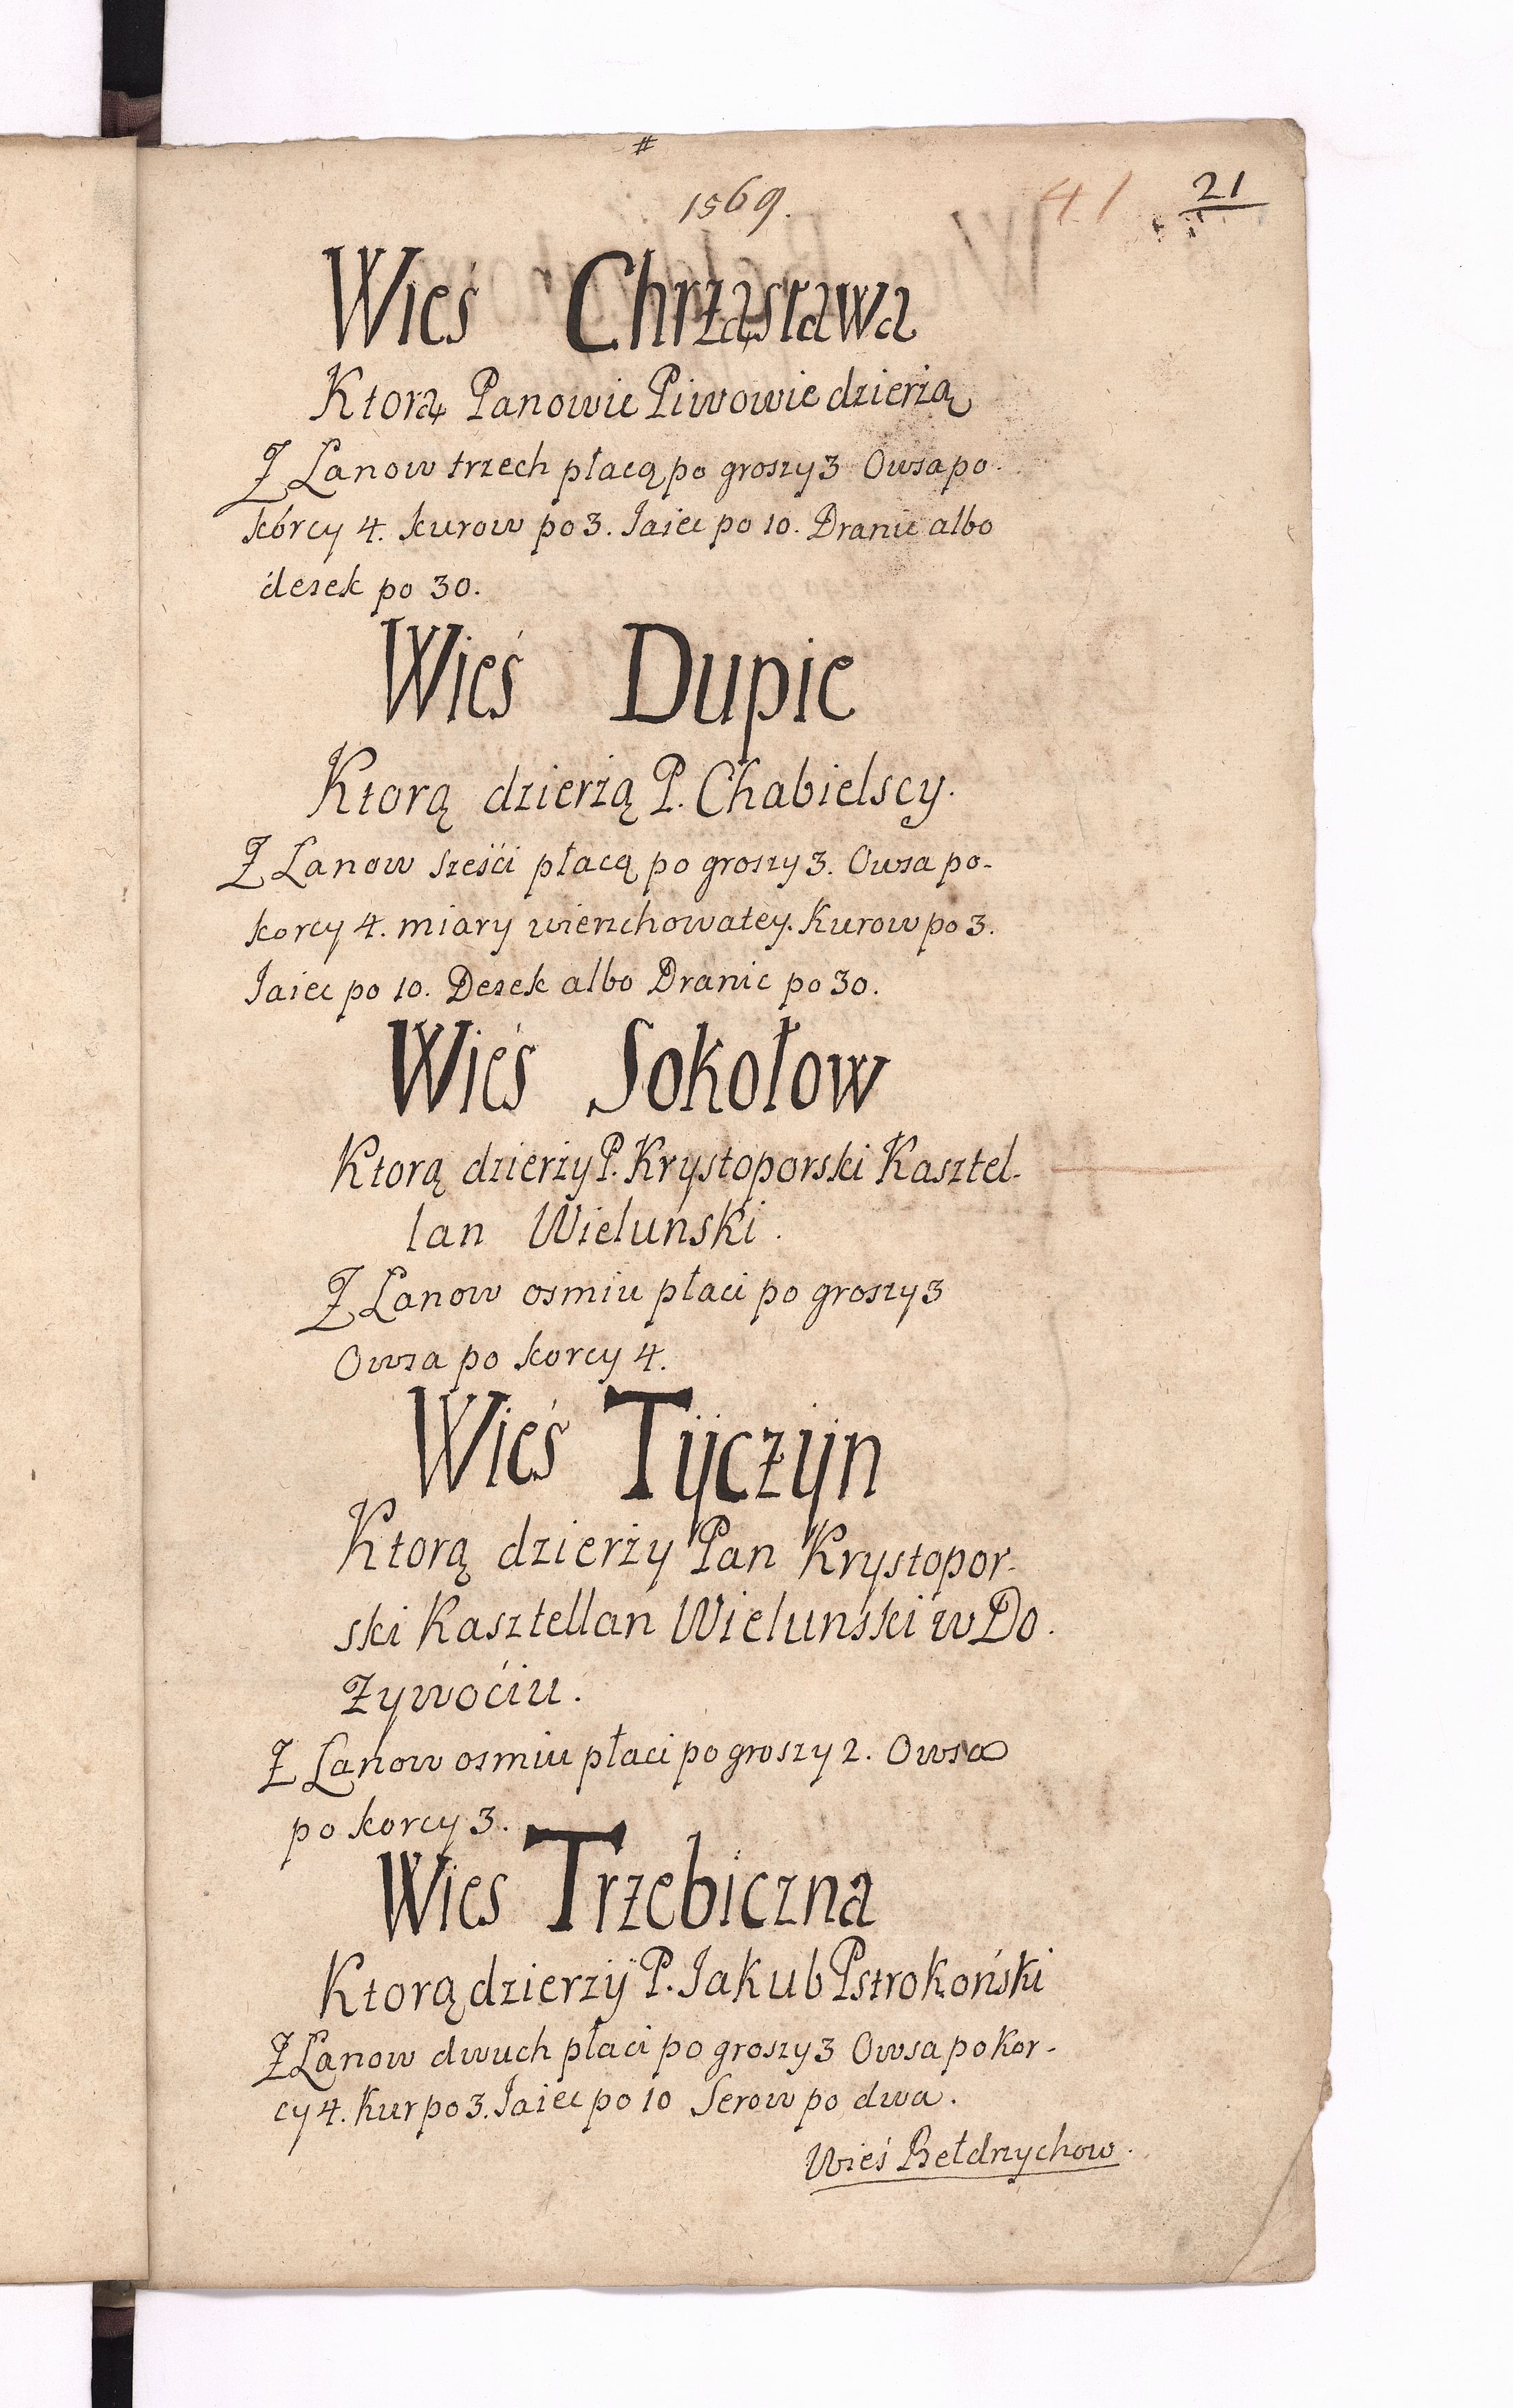 #
1569.
41 21
Wieś Chrząstawa
Ktorą Panowie Piwowie dzierżą
Z Lanow trzech płacą po groszy 3 Owsa po
kórcy 4. kurow po 3. Jaiec po 10. Dranic albo
desek po 30.
Wieś Dupie
Ktorą dzierżą P. Chabielscy.
Z Lanow sześći płacą po groszy 3. Owsa po-
korcy 4. miary wierzchowatey. Kurow po 3.
Jaiec po 10. Desek albo Dranic po 30.
Wieś Sokołow
Ktorą dzierży P. Krystoporski Kasztel-
lan Wielunski.
Z Lanow osmiu płaci po groszy 3
Owsa po korcy 4.
Wieś Tÿczÿn
Ktorą dzierży Pan Krystopor-
ski Kasztellan Wieluński w Do.
żywoćiu.
Z Lanow osmiu płaci po groszy 2. Owsa
po korcy 3.
Wies Trzebiczna
Ktorą dzierzÿ P. Jakub Pstrokoński
Z Lanow dwuch płaci po groszy 3 Owsa po kor-
cy 4. kur po 3. Jaiec po 10 Serow po dwa.
Wieś Bełdrzychow.